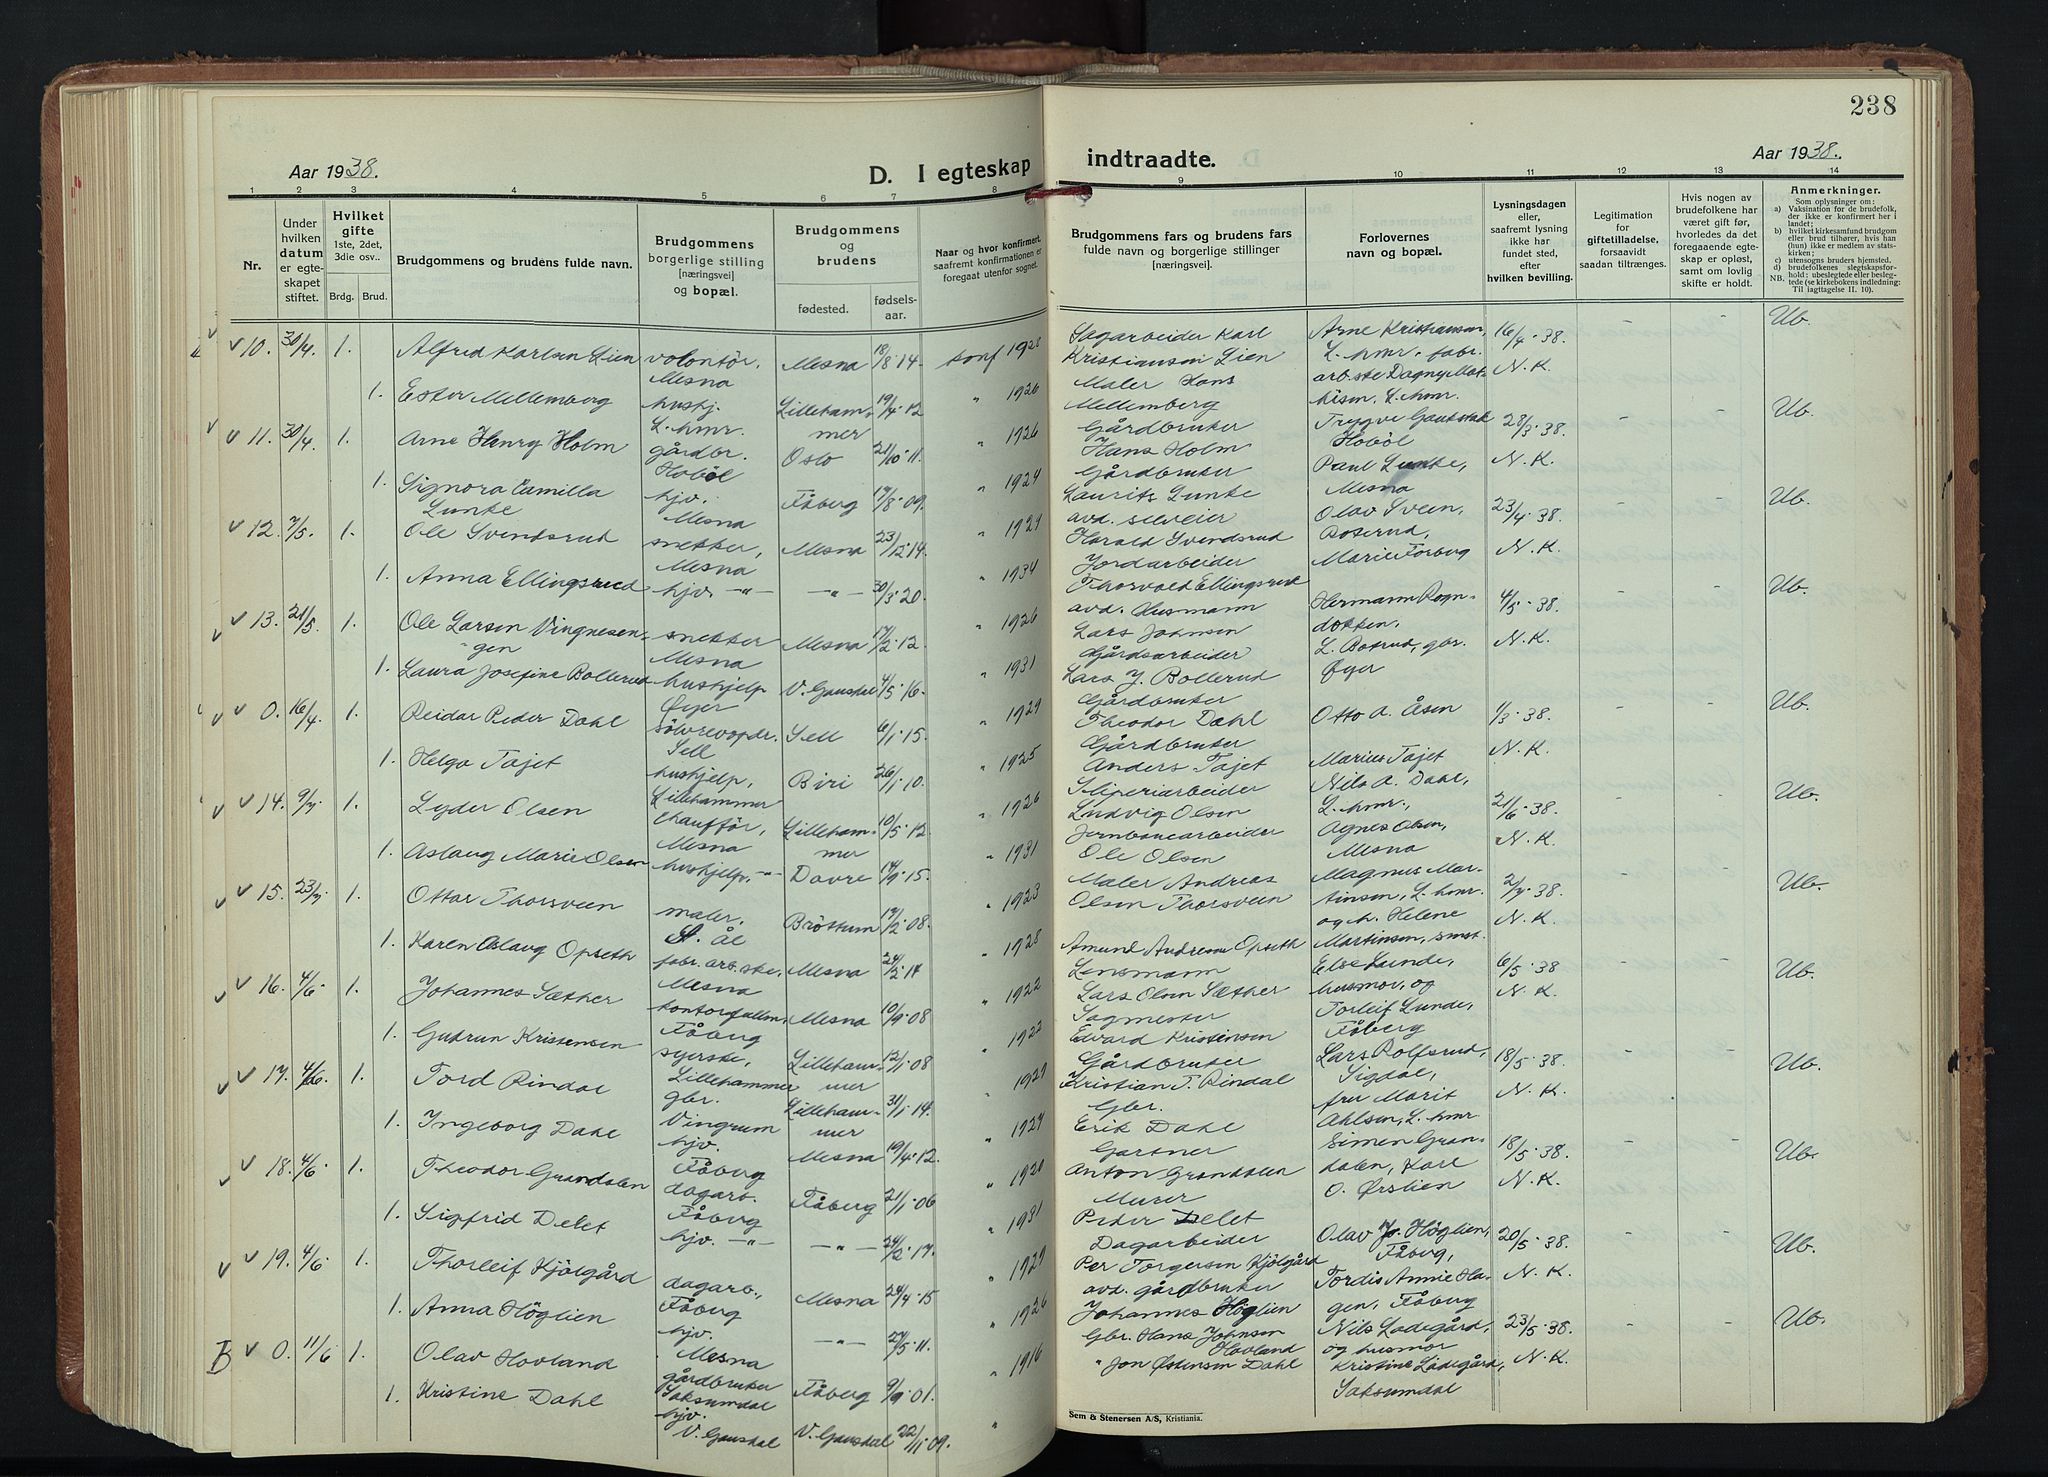 238
Aar 1938.
D. I egteskap
indtraadte.
Aar 1938.
1 2 3 4 5 6 7 8 9 10 11 12 13 14
Nr.
Under hvilken datum er egteskapet stiftet.
Hvilket gifte 1ste, 2det, 3die osv..
Brdg. Brud.
Brudgommens og brudens fulde navn.
Brudgommens borgerlige stilling [næringsvei] og bopæl.
Brudgommens og brudens
fødested. fødselsaar.
Naar og hvor konfirmert, saafremt konfirmationen er foregaat utenfor sognet.
Brudgommens fars og brudens fars fulde navn og borgerlige stillinger [næringsvei].
Forlovernes navn og bopæl.
Lysningsdagen eller, saafremt lysning ikke har fundet sted, efter hvilken bevilling.
Legitimation for giftetilladelse, forsaavidt saadan tiltrænges.
Hvis nogen av brudefolkene har været gift før, hvorledes da det foregaaende egteskap er opløst, samt om lovlig skifte er holdt.
Anmerkninger.
Som oplysninger om:
a) Vaksination for de brudefolk, der ikke er konfirmert her i landet;
b) hvilket kirkesamfund brudgom eller brud tilhører, hvis han (hun) ikke er medlem av statskirken;
c) utensogns bruders hjemsted.
d) brudefolkenes slegtskapsforhold: ubeslegtede eller beslegtede (se kirkebokens indledning:
NB. Til iagttagelse II. 10).
10. 30/4. 1. Alfred Karlsen Lien volontør, Mesna Mesna 18/8 14. konf 1928 Sagarbeider Karl Kristiansen Lien Arne Kristiansen, L.hmr. fabr. 16/4-38. - - Ub.
1. Ester Mellemberg hushj. L.hmr. Lillehammer 19/4-12 " 1926 Maler Hans Mellemberg arb.ske Dagny Mathisen, L.hmr. N.K.
11. 30/4. 1. Arne Henry Holm gårdbr. Hobøl Oslo 21/10-11. " 1926 Gårdbruker Hans Holm Trygve Gautestak Hobøl 28/3-38. - - Ub.
1. Signora Camilla Lunke hjv. Mesna Fåberg 17/8-09. " 1924 Gårdbruker Laurits Lunke Paul Lunke, Mesna N.K.
12. 7/5. 1. Ole Svendsrud snekker, Mesna Mesna 23/12-14. " 1929 avd. selveier Harald Svendsrud Olav Sveen, Roserud, 23/4-38. - - Ub.
1. Anna Ellingsrud hjv. -"- -"- 30/3-20. " 1934 Jordarbeider Thorvald Ellingsrud Marie Forberg N.K.
13. 21/5. 1. Ole Larsen Vingnesengen snekker Mesna Mesna 17/2-12. " 1926 avd. Husmann Lars Johnsen Hermann Rogndokken, 4/5-38. - - Ub.
1. Laura Josefine Bollerud hushjelp Øyer V. Gausdal 4/5-16. " 1931 Gårdsarbeider Lars J. Bollerud L. Botrud, gbr. Øyer N.K.
0. 16/4. 1. Reidar Peder Dahl sølvrevoppdr. Sell Sell 6/1-15. " 1929 Gårdbruker Theodor Dahl Otto A. Åsen 1/3-38. - - Ub.
1. Helga Tajet hushjelp, Lillehammer Biri 26/1-10. " 1925 Gårdbruker Anders Tajet Marius Tajet N.K.
14. 9/7. 1. Lyder Olsen chauffør, Mesna Lillehammer 10/5-12 " 1926 Sliperiarbeider Ludvig Olsen Nils A. Dahl, L.hmr., 21/6-38. - - Ub.
1. Aslaug Marie Olsen hushjelp, -"- Dovre 14/9-15. " 1931 Jernbanearbeider Ole Olsen Agnes Olsen, Mesna N.K.
15. 23/7. 1. Ottar Thorsveen maler. St. Ål Brøttum 17/2-08. " 1923 Maler Andreas Olsen Thorsveen Magnus Martinsen, L.hmr 2/7-38. - - Ub.
1. Karen Aslaug Opseth fabr.arb.ske, Mesna Mesna 24/2-14 " 1928 Amund Andreas Opseth og h. Helene Martinsen, smst. N.K.
16. 4/6. 1. Johannes Sæther kontorfullm. Fåberg Mesna 10/9-08 " 1922 Lensmann Lars Olsen Sæther Else Lunde, husmor, og 6/5-38 - - Ub.
1. Gudrun Kristensen syerske, Lillehammer Lillehammer 12/1-08 " 1922 Sagmester Edvard Kristensen Torleif Lunde, Fåberg N.K.
17. 4/6. 1. Tord Rindal gbr. Vingrum Lillehammer 31/1-14. " 1929 Gårdbruker Kristian T. Rindal Lars Rolfsrud, Sigdal, 18/5-38. - - Ub.
1. Ingeborg Dahl hjv. Fåberg Mesna 19/4-12. " 1927 Gbr. Erik Dahl fru Marit Ahlsen, L.hmr N.K.
18. 4/6. 1. Theodor Grandalen dagarb. Fåberg Fåberg 21/1-06 " 1920 Gartner Anton Grandalen Simen Grandalen, Karl 18/5-38. - - Ub.
1. Sigfrid Delet hjv. -"- -"- 24/2-17. " 1931 Murer Peder Delet O. Ørslien N.K.
19. 4/6. 1. Thorleif Kjølgård dagarb., Fåberg Mesna 24/4-15 " 1929 Dagarbeider Per Torgersen Kjølgård Olav Jo. Høglien, Fåberg, 20/5-38. - - Ub.
1. Anna Høglien hjv. Mesna -"- 27/5-11. " 1926 avd. gårdbruker Johannes Høglien Tordis Annie Hagen, Fåberg N.K.
B 0. 11/6 1. Olav Hovland gårdbruker Saksumdal Fåberg 9/9-01. " 1916 Gbr. Hans Johnsen Hovland Nils Ladegård, og husmor 23/5-38. - - Ub.
1. Kristine Dahl hjv. V. Gausdal V. Gausdal 22/11-09. " " Jon Østensen Dahl Kristine Ladegård, Saksumdal N.K.
Sem & Stenersen A/S, Kristiania.